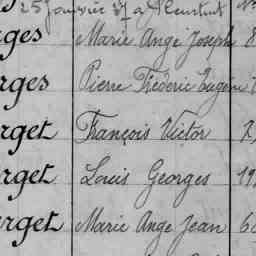 25 Janvier 37 à
rges Marie Ange Joseph 8
rges Pierre Fréderic Eugène
rget François Victor
rget Louis Georges 19
rget Marie Ange Jean 6